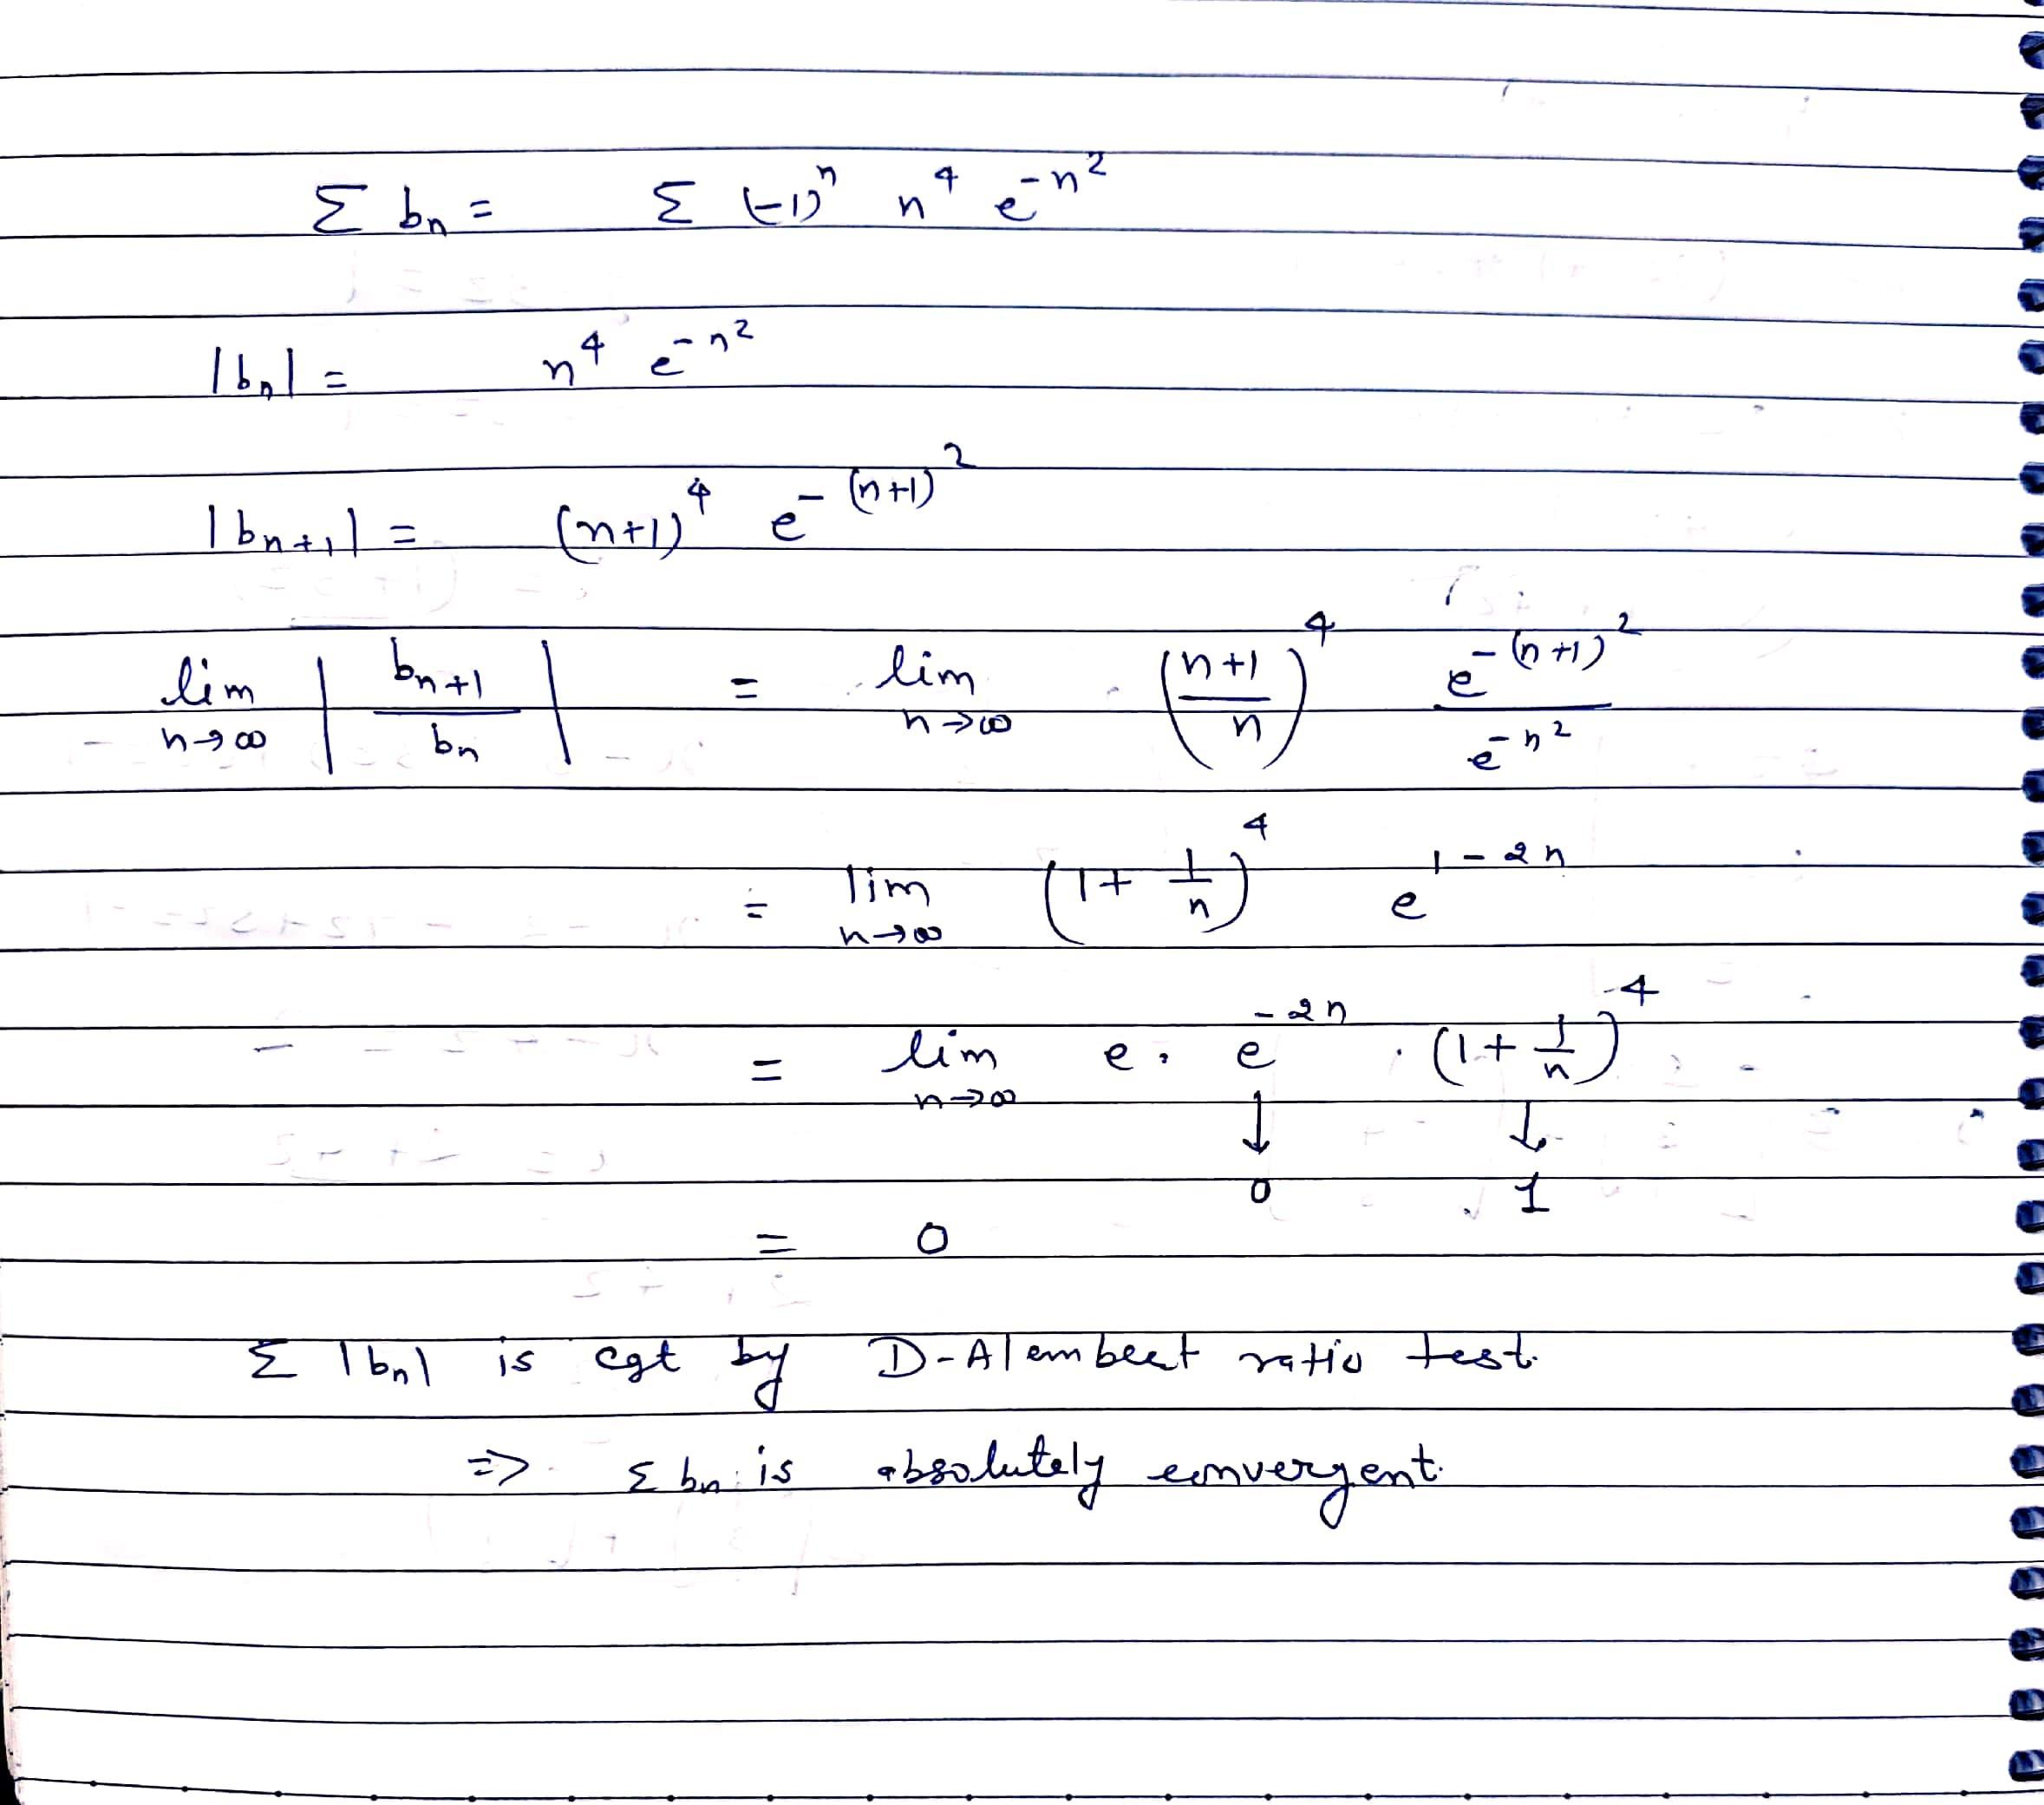 Σ bₙ = Σ (-1)ⁿ n⁴ e^{-n²}
|bₙ| = n⁴ e^{-n²}
|bₙ₊₁| = (n+1)⁴ e^{-(n+1)²}
lim n→∞ | bₙ₊₁ / bₙ | = lim n→∞ · ((n+1)/n)⁴ e^{-(n+1)²} / e^{-n²}
= lim n→∞ (1 + 1/n)⁴ e^{1-2n}
= lim n→∞ e · e^{-2n} · (1 + 1/n)^{-4}
↓ ↓
0 1
= 0
Σ |bₙ| is cgt by D-Alembert ratio test.
=> Σ bₙ is absolutely convergent.